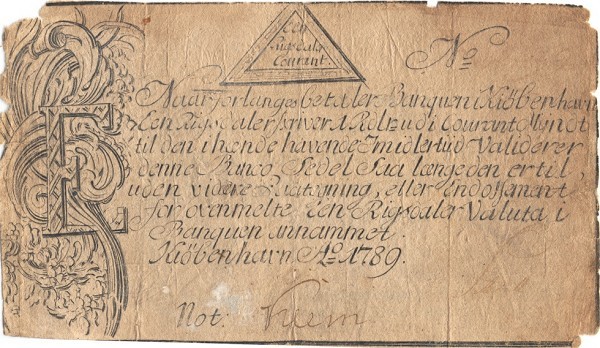 Een
Rigsdaler
Courant
No
E
Naar forlanges betaler Banquen i Kiöbenhavn
Een Rigsdaler i Courant Myndt
til den ihænde havende Imidlertid Validerer
denne Banco Sedel Saa længe den er til,
uden videre eller Endossament
for ovenmelte Een Rigsdaler Valuta i
Banquen annammet.
Kiöbenhavn Ao. 1789.
Not.